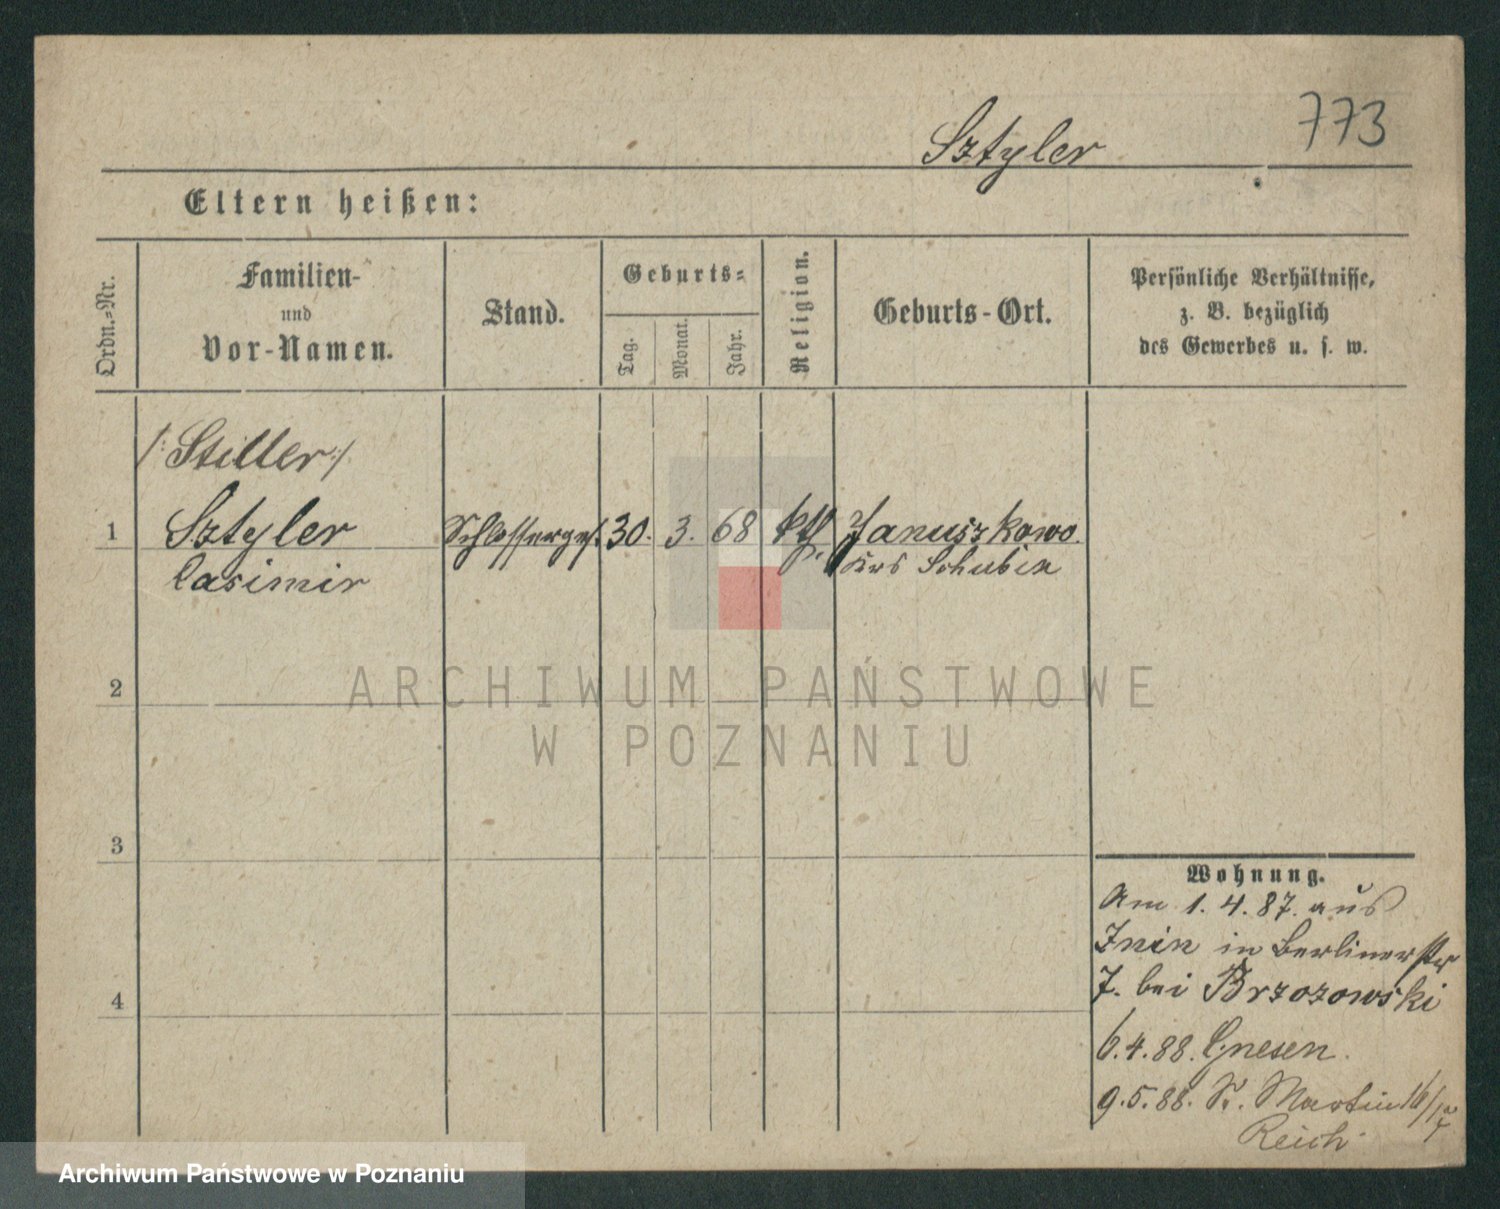 773
Sztyler
Eltern heißen:
Ordn.-Nr.
Familien-
und
Vor-Namen.
Stand.
Geburts-
Tag.
Monat.
Jahr.
Religion.
Geburts-Ort.
Persönliche Verhältnisse,
z. B. bezüglich
des Gewerbes u. s. w.
/: Stiller :/
1 Sztyler Schlosserges. 30. 3. 68 kth. Januszkowo
Casimir Krs Schubin
2
3
4
Wohnung.
Am 1. 4. 87. aus
Znin in Berlinerstr
7. bei Brzozowski
6.4.88. Gnesen.
9.5.88. St. Martin 16/17
Reich
ARCHIWUM PAŃSTWOWE
W POZNANIU
Archiwum Państwowe w Poznaniu